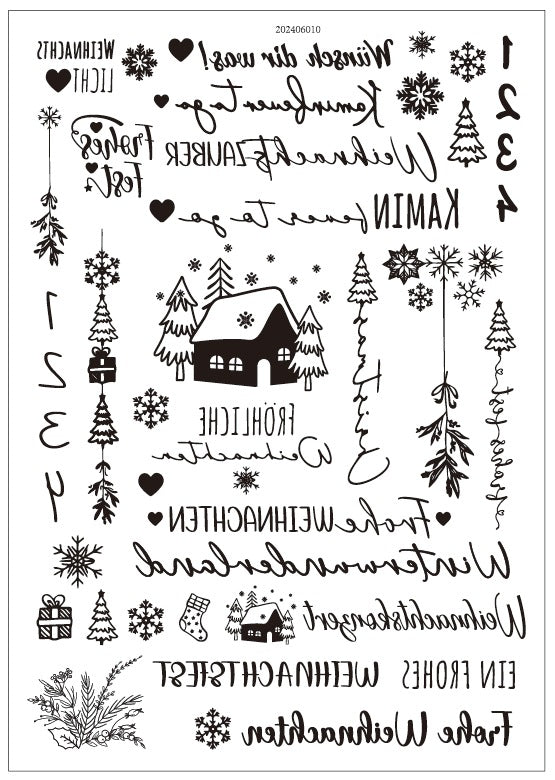 202406010
WEIHNACHTS
LICHT
Wünsch dir was!
Kaminfeuer to go
Frohes
Fest
WeihnachtsZAUBER
KAMIN feuer to go
1
2
3
4
1
2
3
4
FRÖHLICHE
Weihnachten
Frohe WEIHNACHTEN
Winterwunderland
Weihnachtskonzert
EIN FROHES WEIHNACHTSFEST
Frohe Weihnachten